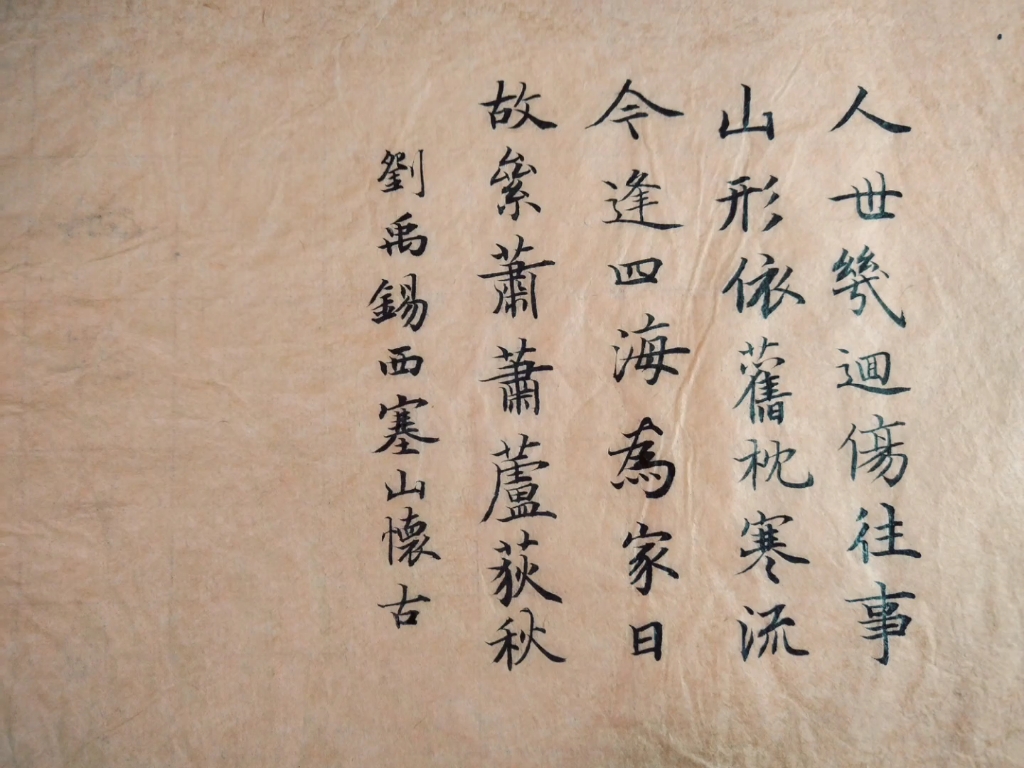 人世幾迴傷往事
山形依舊枕寒流
今逢四海為家日
故壘蕭蕭蘆荻秋
劉禹錫西塞山懷古